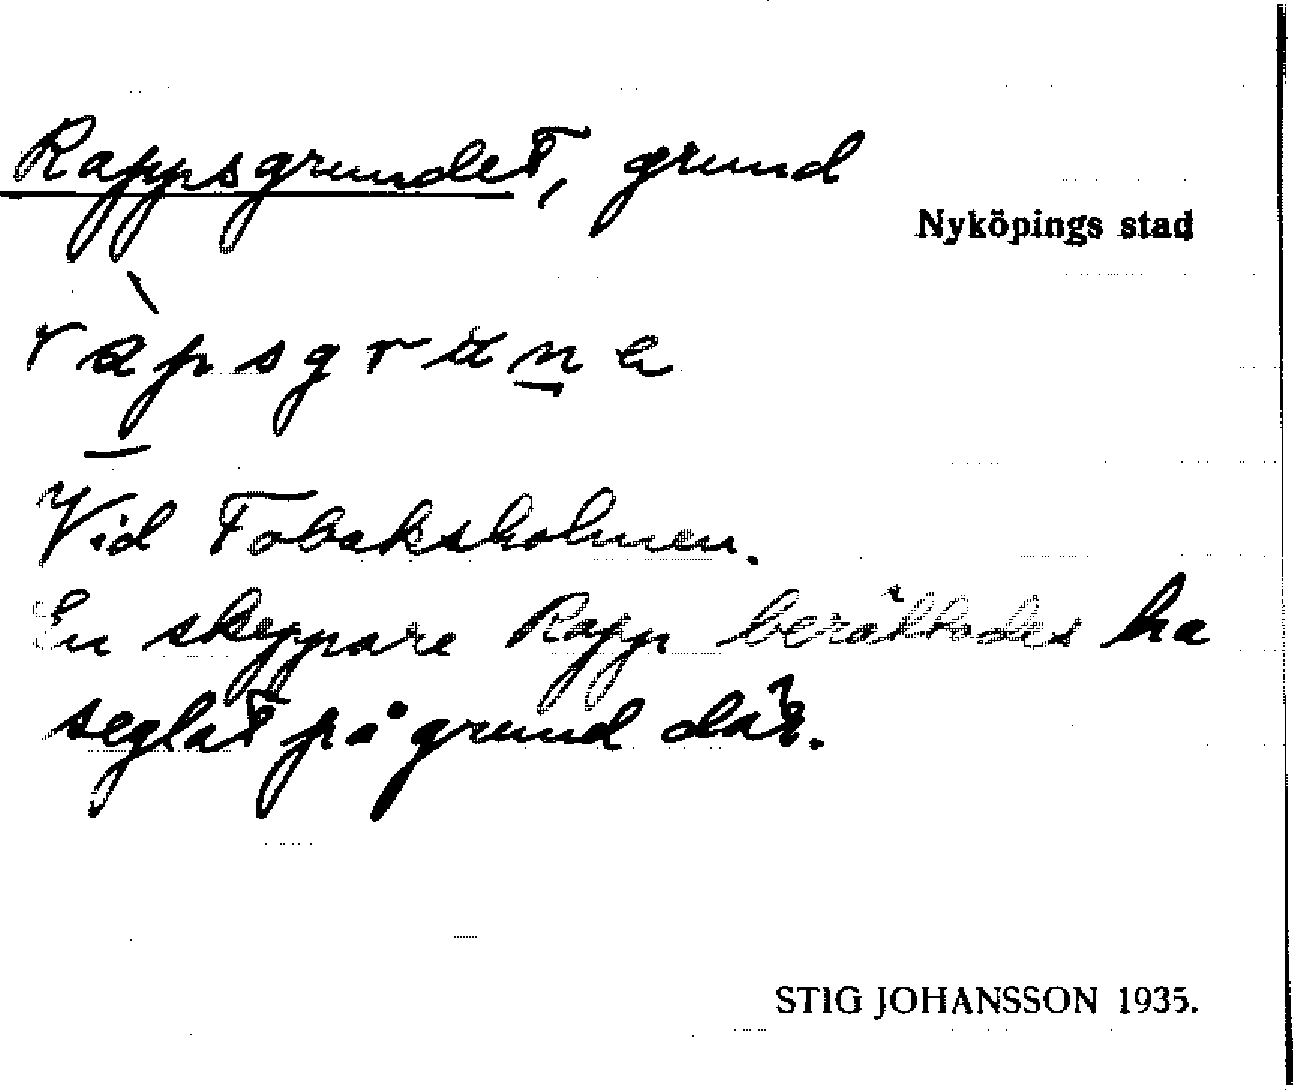 Rappsgrundet, grund
Nyköpings stad
ràpsgrune
Vid Tobaksholmen.
En skeppare Rapp berättades ha
seglat på grund där.
STIG JOHANSSON 1935.